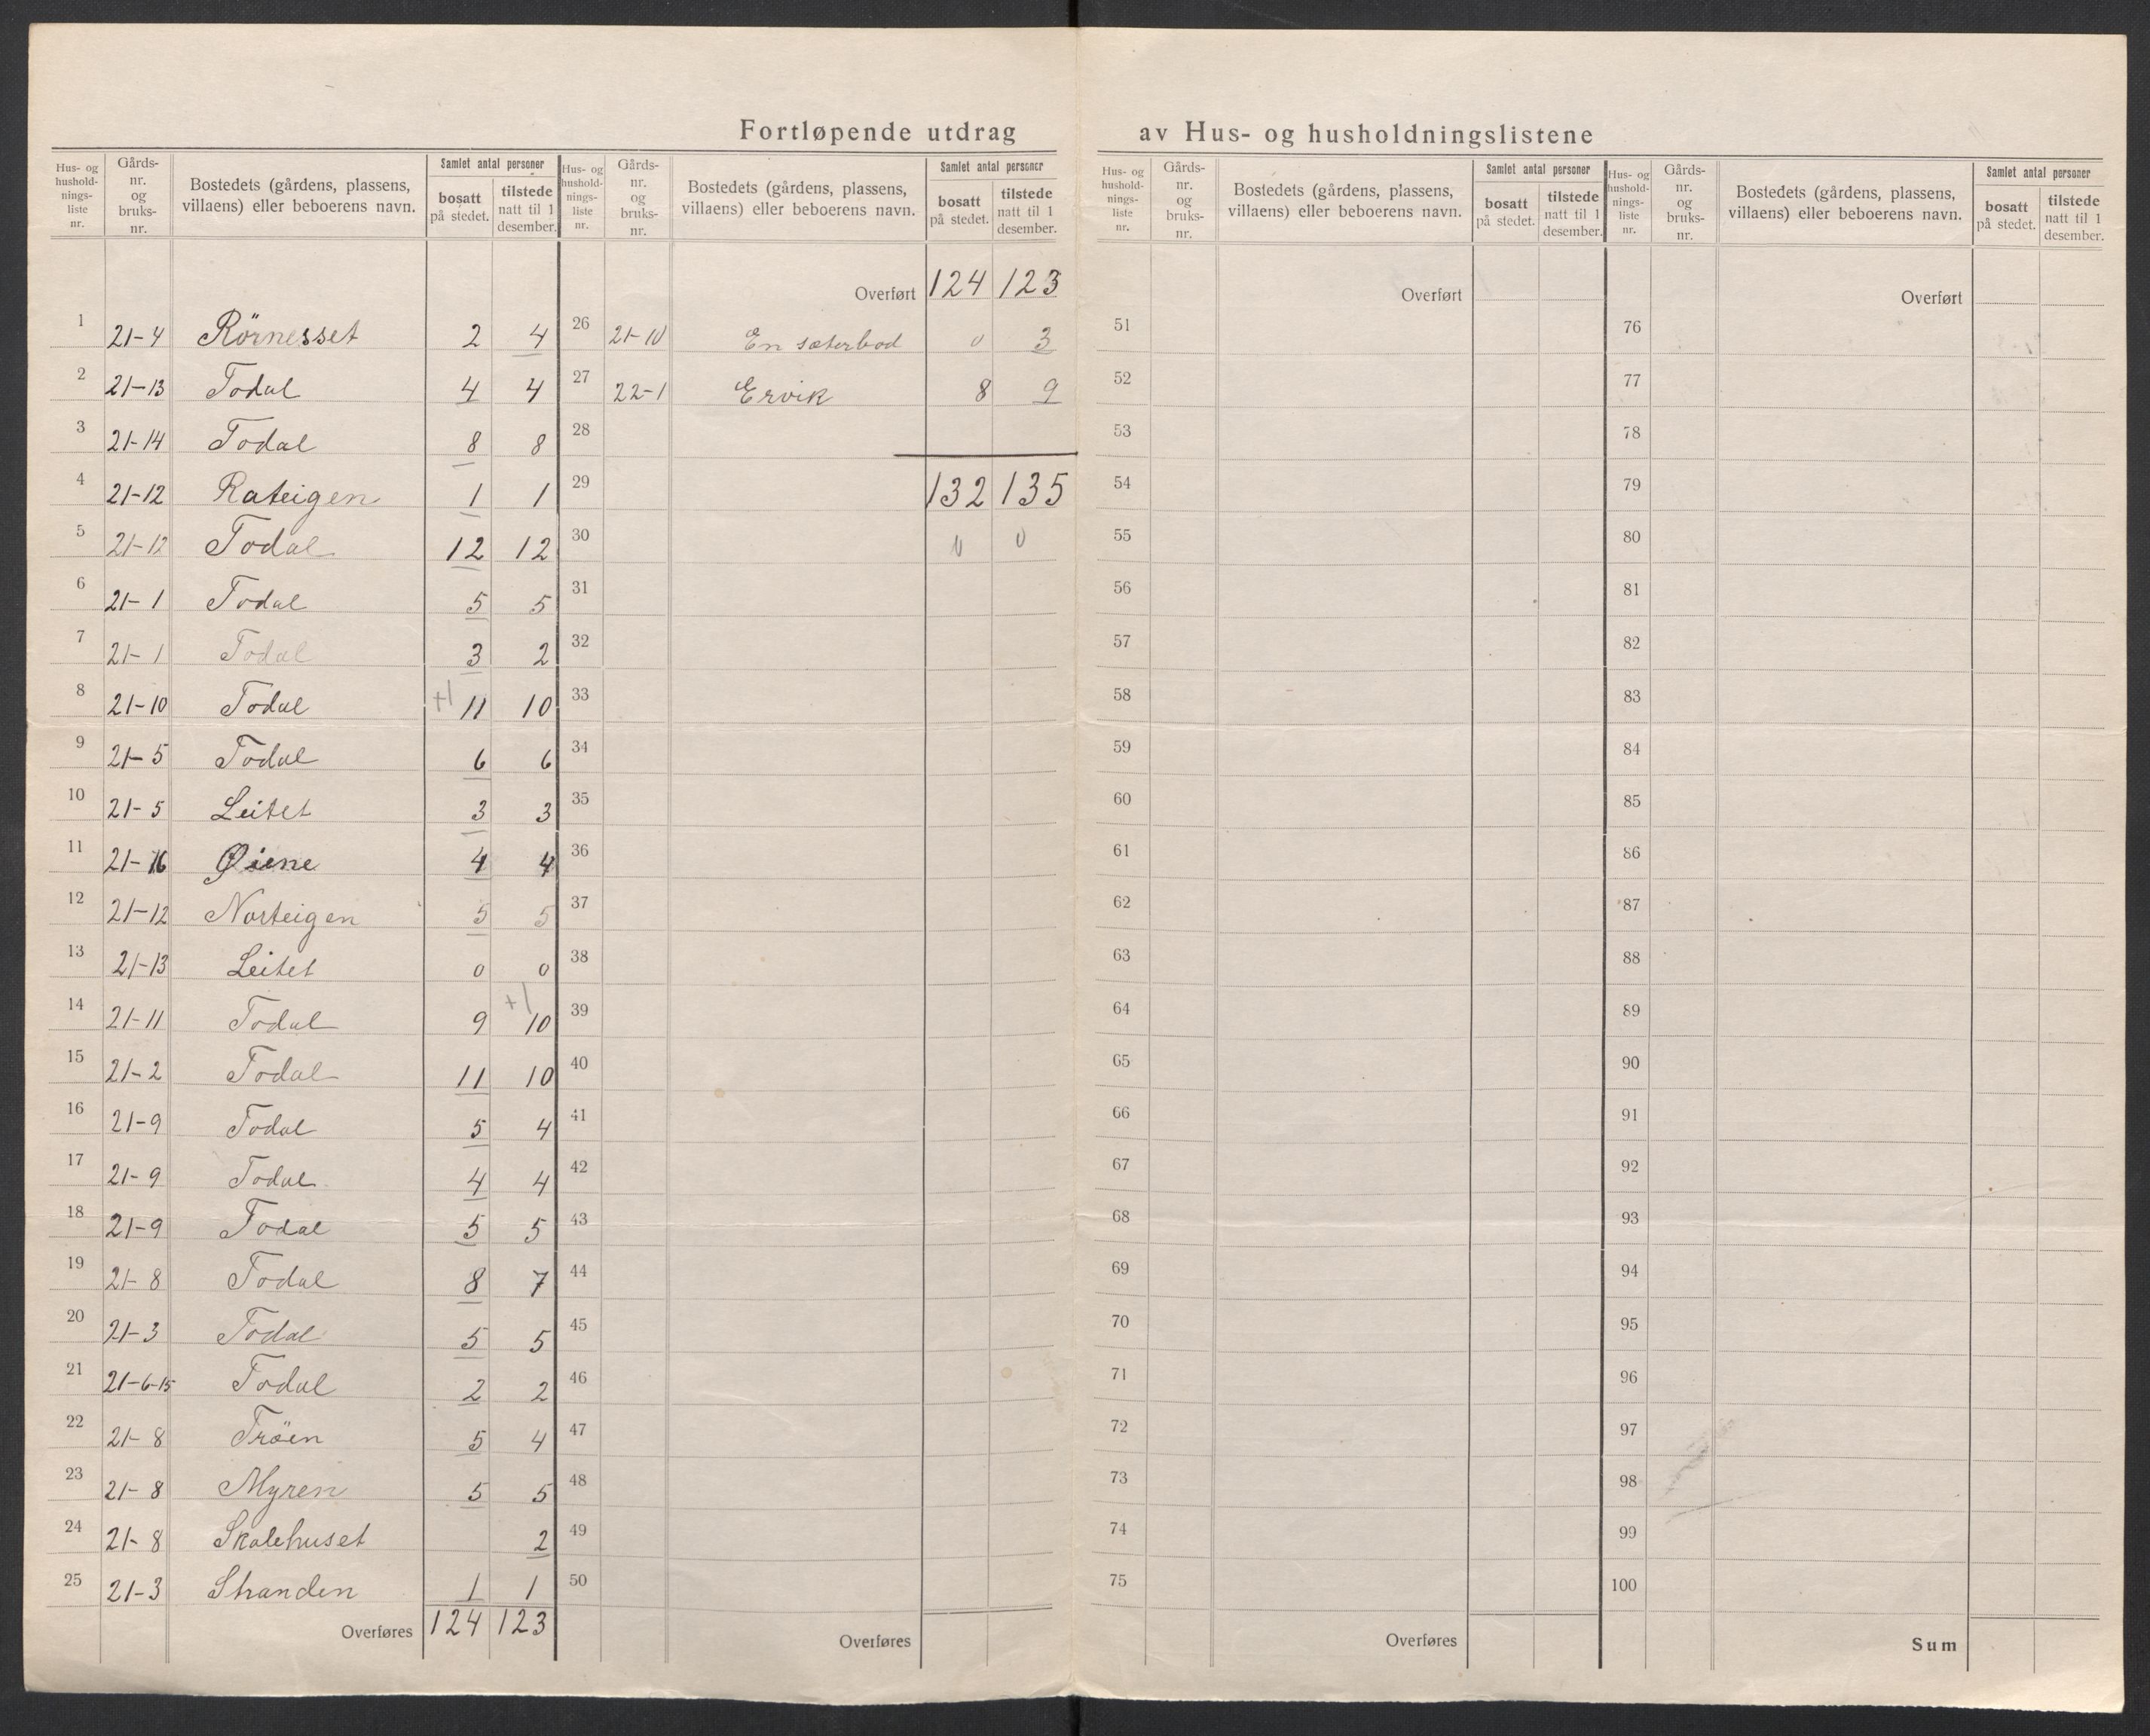 Fortløpende utdrag av Hus- og husholdningslistene
Hus- og hushold- nings- liste nr. | Gårds- nr. og bruks- nr. | Bostedets (gårdens, plassens, villaens) eller beboerens navn. | Samlet antal personer | bosatt på stedet. | tilstede natt til 1 desember.
1 21-4 Rörnesset 2 4
2 21-13 Todal 4 4
3 21-14 Todal 8 8
4 21-12 Rateigen 1 1
5 21-12 Todal 12 12
6 21-1 Todal 5 5
7 21-1 Todal 3 2
8 21-10 Todal +1 11 10
9 21-5 Todal 6 6
10 21-5 Leitet 3 3
11 21-16 Øiene 4 4
12 21-12 Norteigen 5 5
13 21-13 Leitet 0 0
14 21-11 Todal 9 +1 10
15 21-2 Todal 11 10
16 21-9 Todal 5 4
17 21-9 Todal 4 4
18 21-9 Todal 5 5
19 21-8 Todal 8 7
20 21-3 Todal 5 5
21 21-6-15 Todal 2 2
22 21-8 Tröen 5 4
23 21-8 Myren 5 5
24 21-8 Skolehuset 2
25 21-3 Stranden 1 1
Overføres 124 123
Hus- og hushold- nings- liste nr. | Gårds- nr. og bruks- nr. | Bostedets (gårdens, plassens, villaens) eller beboerens navn. | Samlet antal personer | bosatt på stedet. | tilstede natt til 1 desember.
Overført 124 123
26 21-10 En sæterbod 0 3
27 22-1 Ervik 8 9
28
29 132 135
30 0 0
31
32
33
34
35
36
37
38
39
40
41
42
43
44
45
46
47
48
49
50
Overføres
Hus- og hushold- nings- liste nr. | Gårds- nr. og bruks- nr. | Bostedets (gårdens, plassens, villaens) eller beboerens navn. | Samlet antal personer | bosatt på stedet. | tilstede natt til 1 desember.
Overført
51
52
53
54
55
56
57
58
59
60
61
62
63
64
65
66
67
68
69
70
71
72
73
74
75
Overføres
Hus- og hushold- nings- liste nr. | Gårds- nr. og bruks- nr. | Bostedets (gårdens, plassens, villaens) eller beboerens navn. | Samlet antal personer | bosatt på stedet. | tilstede natt til 1 desember.
Overført
76
77
78
79
80
81
82
83
84
85
86
87
88
89
90
91
92
93
94
95
96
97
98
99
100
Sum